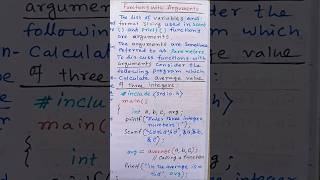 Functions with Arguments
The list of variables and
format string used in scanf
() and printf() functions
are arguments.
The arguments are sometimes
referred to as Parameters.
To discuss functions with
arguments consider the
following program which
Calculate average value
of three integers
#include <stdio.h>
main()
{
int a, b, c, avg;
printf("Enter three integer
numbers:");
scanf("%d%d%d", &a,&b,
&c);
avg = average(a,b,c);
// calling a function
printf("\n the average is =
%d", avg);